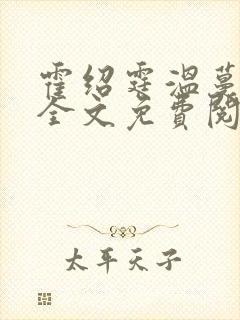 霍绍霆温蔓
全文免费阅
太平天子